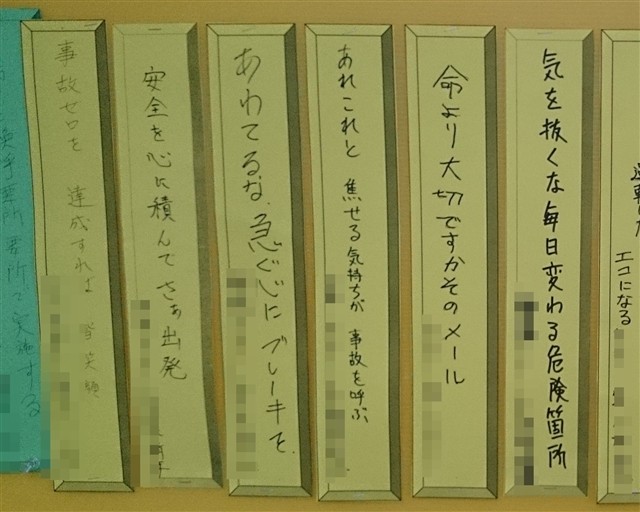 エコになる
気を抜くな毎日変わる危険箇所
命より大切ですかそのメール
あれこれと 焦せる気持ちが 事故を呼ぶ
あわてるな、急ぐ心に ブレーキを
安全を心に積んで さぁ出発
事故ゼロを 達成すれば 皆笑顔
喚呼要所要所で実施する